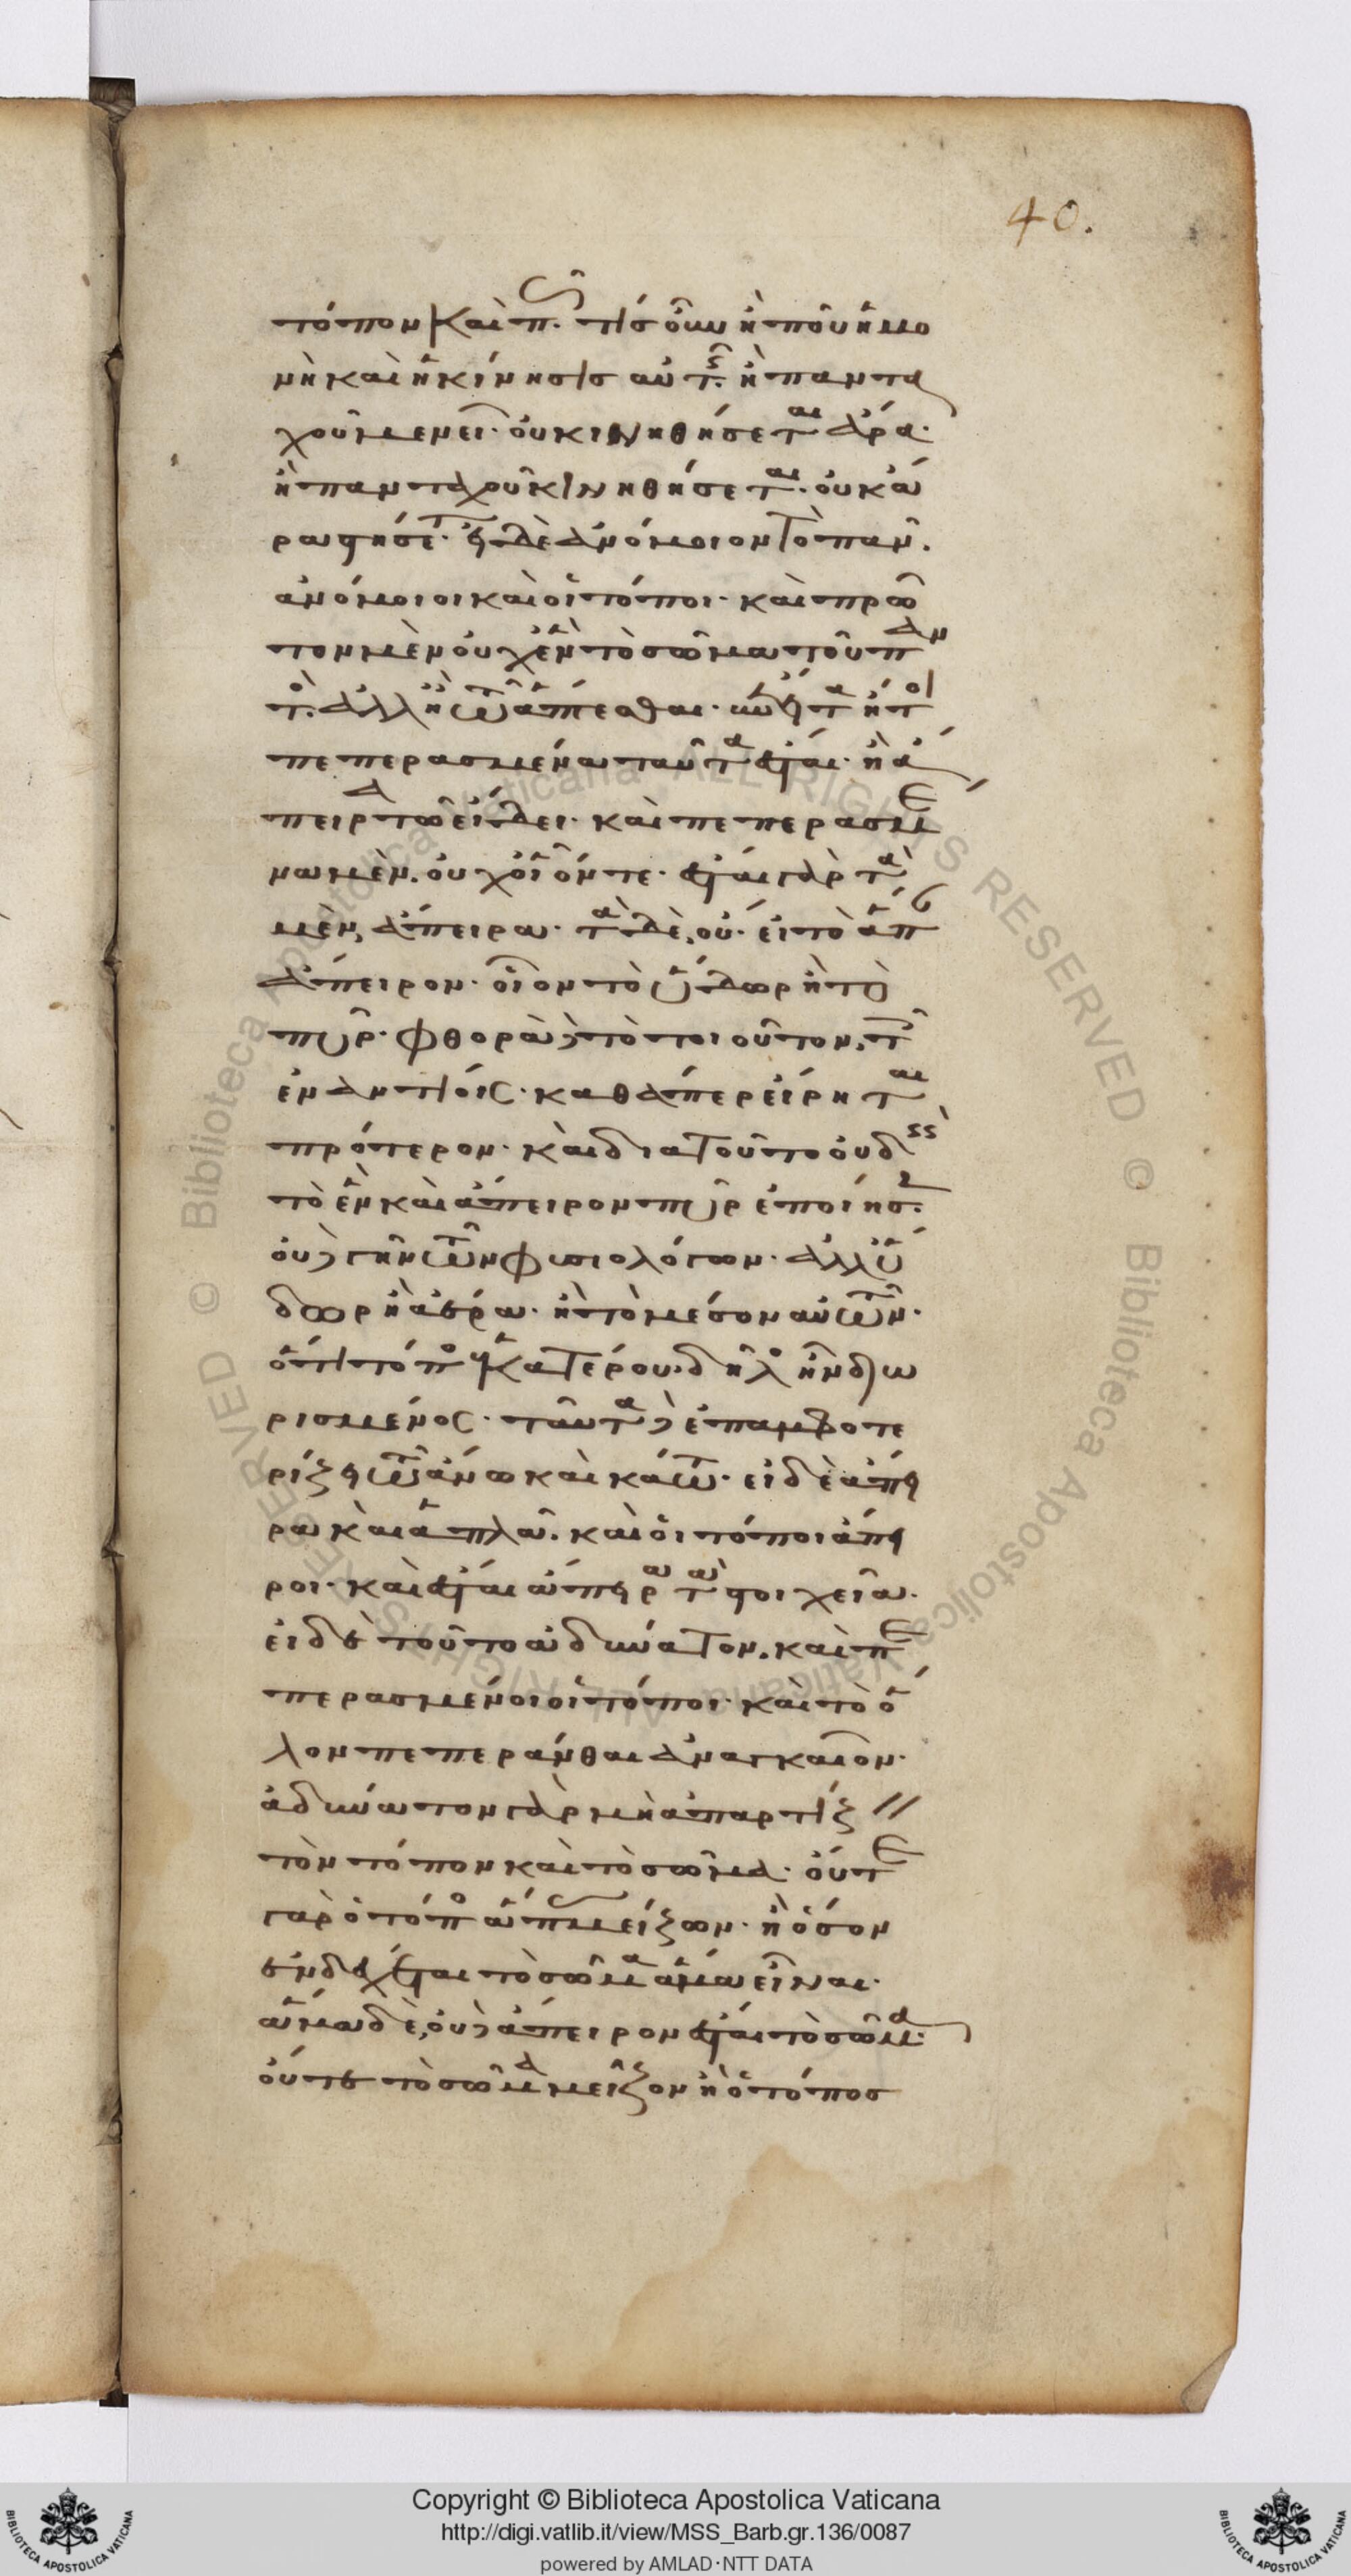 40.
τόπον καὶ π. τίσ οὖν ἢ ποῦ ἡ μο
νὴ καὶ ἡ κίνησισ αὐτῆς. ἢ παντα
χοῦ μενεῖ· οὐ κινηθήσεται ἄρα·
ἢ πανταχοῦ κινηθήσεται· οὐκ ἄ
ρα στήσεται· εἰ δὲ ἀνόμοιον τὸ πᾶν.
ἀνόμοιοι καὶ οἱ τόποι· καὶ πρῶ
τον μὲν οὐχ ἓν τὸ σῶμα τοῦ παν
τὸς. ἀλλ ἢ τῶ ἅπτεσθαι· ἔπειτα ἤτοι
πεπερασμένα ταῦτα ἔσται· ἢ ἄ
πειρα τῶ εἴδει· καὶ πεπερασμε
να μὲν. οὐχ οἷόν τε· ἔσται γὰρ τὰ
μὲν, ἄπειρα· τὰ δὲ, οὔ· εἰ τὸ ἅπαν
ἄπειρον· οἷον τὸ ὕδωρ ἢ τὸ
πῦρ· φθορὰ δὲ τὸ τοιοῦτον, τοῖς
ἐναντίοις· καθάπερ εἴρηται
πρότερον· καὶ διατοῦτο οὐδεὶς
τὸ ἓν καὶ ἄπειρον πῦρ ἐποίησεν.
οὐδὲ γῆν τῶν φυσιολόγων· ἀλλ ὕ
δωρ ἢ ἀέρα· ἢ τὸ μέσον αὐτῶν·
ὅτι τόπος ἑκατέρου δῆλος ἦν διω
ρισμένος· ταῦτα δὲ ἐπαμφοτε
ρίζει τῶ ἄνω καὶ κάτω· εἰ δὲ ἄπει
ρα καὶ ἁπλᾶ. καὶ οἱ τόποι ἄπει
ροι· καὶ ἔσται ἄπειρα τὰ στοιχεῖα·
εἰ δὲ τοῦτο ἀδύνατον. καὶ πε
περασμένοι οἱ τόποι· καὶ τὸ ὅ
λον πεπεράνθαι ἀναγκαῖον·
ἀδύνατον γὰρ μὴ ἀπαρτίζειν
τὸν τόπον καὶ τὸ σῶμα· οὔτε
γὰρ ὁ τόπος ἅπας μείζων· ἢ ὅσον
ἐνδέχεται τὸ σῶμα ἅμα εἶναι·
ἅμα δὲ, οὐδὲ ἄπειρον ἔσται τὸ σῶμα·
οὔτε τὸ σῶμα μεῖζον ἢ ὁ τόπος
Copyright © Biblioteca Apostolica Vaticana
http://digi.vatlib.it/view/MSS_Barb.gr.136/0087
powered by AMLAD·NTT DATA